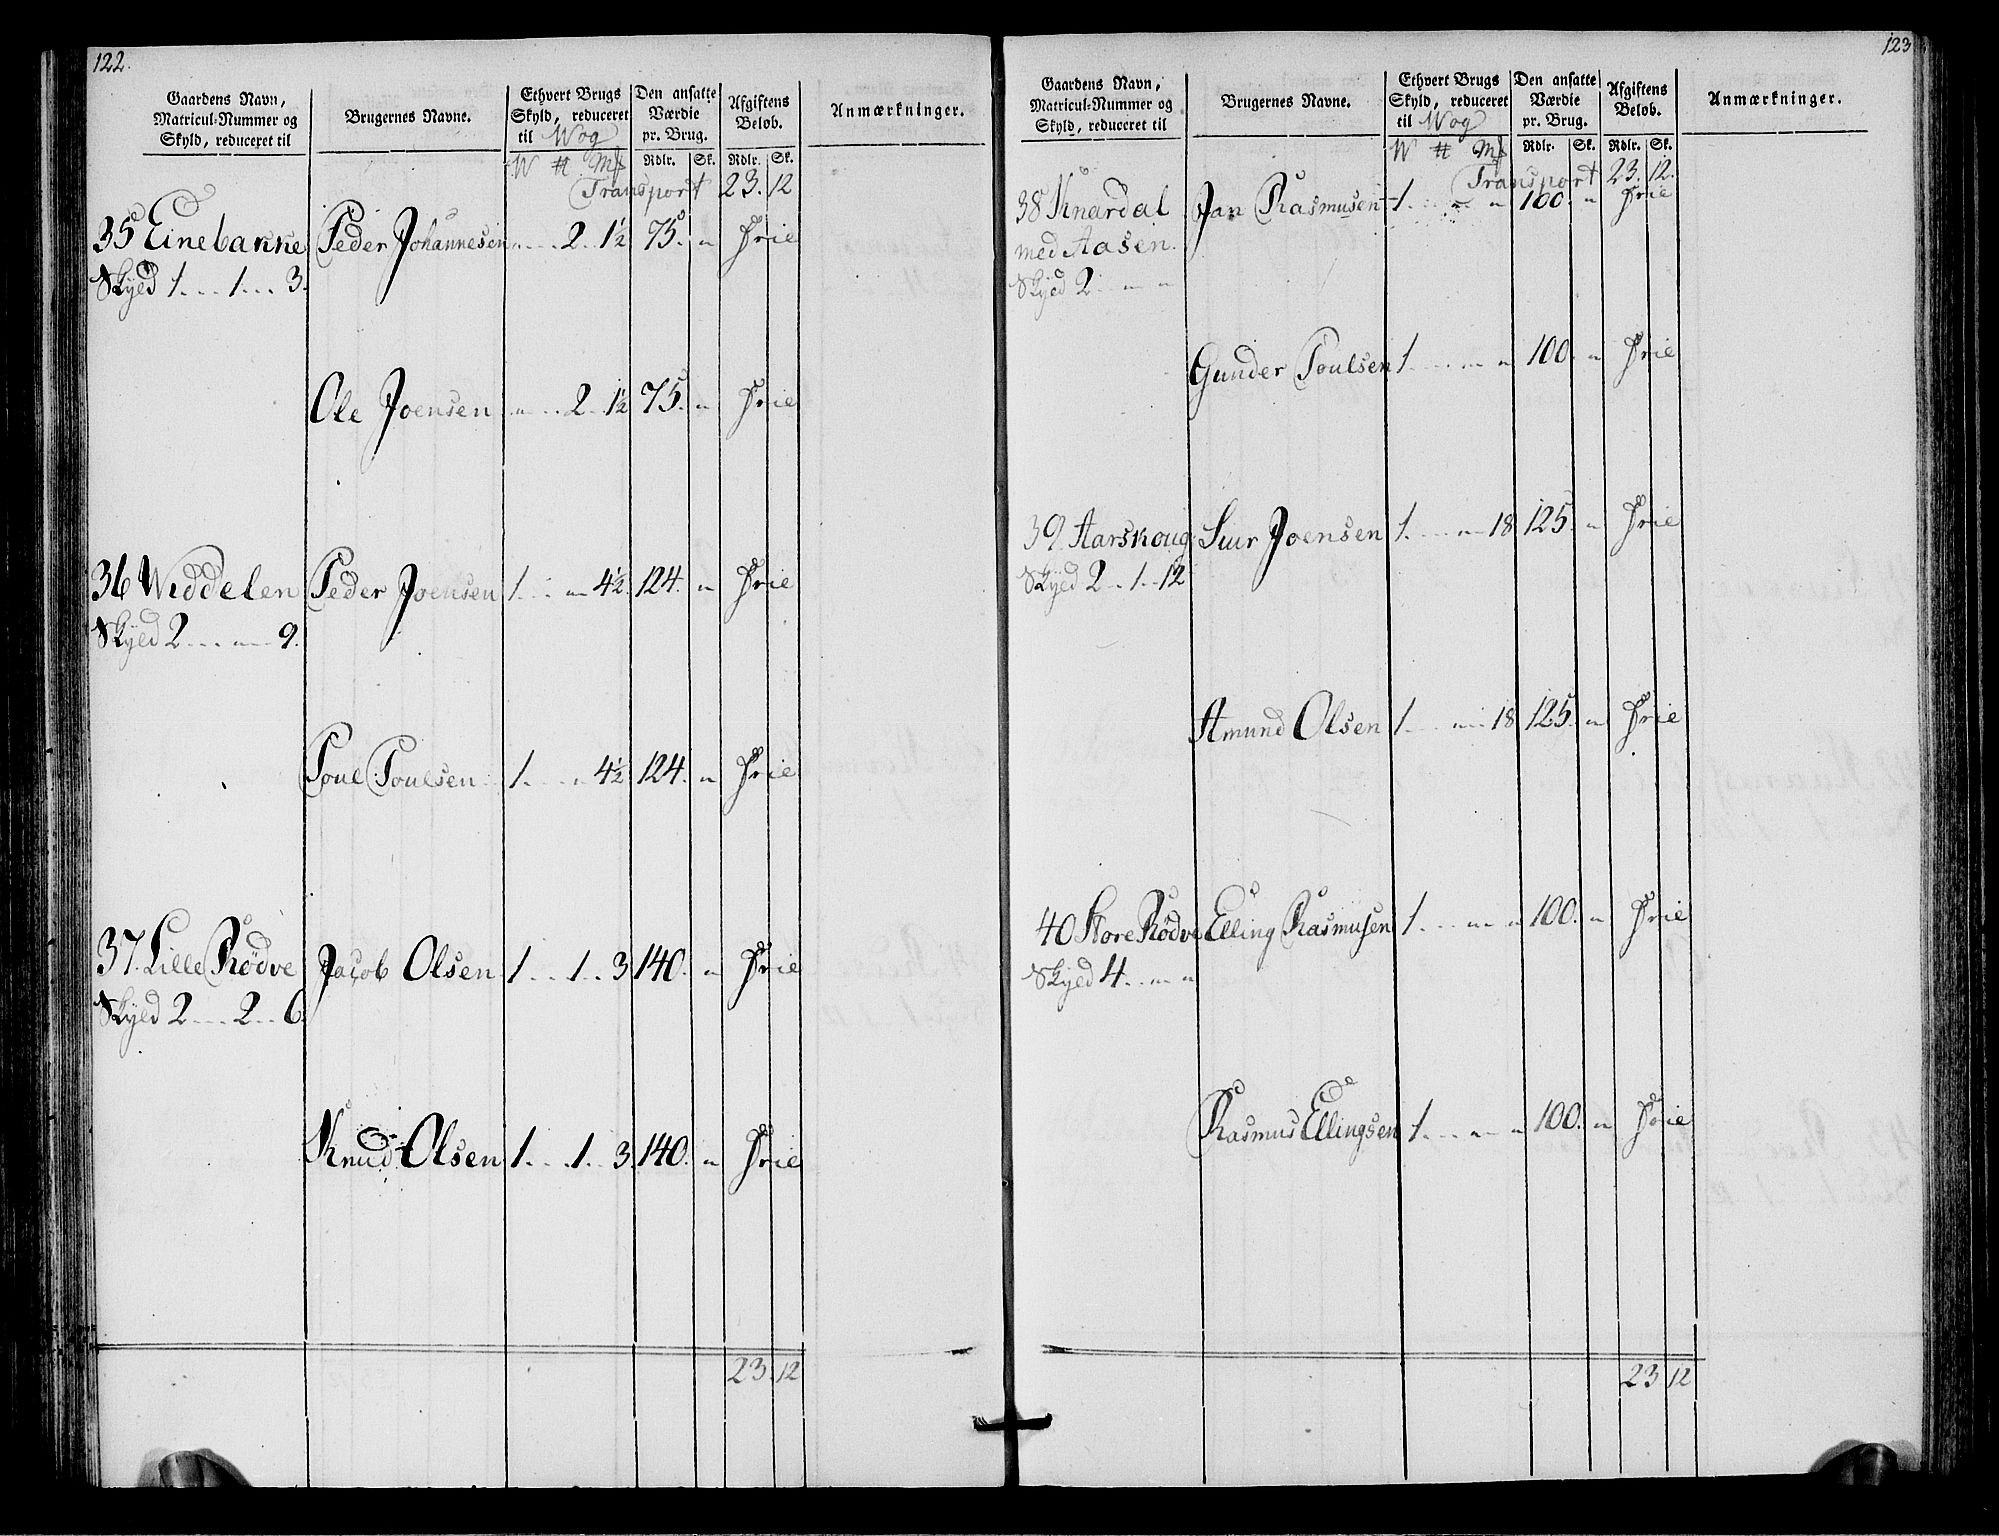 122.
Gaardens Navn, Matricul-Nummer og Skyld, reduceret til
Brugernes Navne.
Ethvert Brugs Skyld, reduceret til Wog
Den ansatte Værdie pr. Brug.
Afgiftens Beløb.
Anmærkninger.
W ## Mk Rdlr. Sk. Rdlr. Sk.
Transport 23. 12
35 Einebakke Peder Johannesen „ 2 1½ 75. „ Frie
Skyld 1 1 3.
Ole Joensen „ 2 1½ 75. „ Frie
36 Widdelen Peder Joensen 1 „ 4½ 124. „ Frie
Skyld 2 „ 9.
Poul Poulsen 1 „ 4½ 124. „ Frie
37. Lille Rødve Jacob Olsen 1 1 3 140. „ Frie
Skyld 2 2 6
Knud Olsen 1 1 3 140. „ Frie
23. 12
123
Gaardens Navn, Matricul-Nummer og Skyld, reduceret til
Brugernes Navne.
Ethvert Brugs Skyld, reduceret til Wog
Den ansatte Værdie pr. Brug.
Afgiftens Beløb.
Anmærkninger.
W ## Mk Rdlr. Sk. Rdlr. Sk.
Transport 23. 12.
38 Knardal Jan Rasmusen 1 „ „ 100. „ Frie
med Aasen.
Skyld 2 „ „
Gunder Poulsen 1 „ „ 100. „ Frie
39. Aarskoug Siur Joensen 1 „ 18 125. „ Frie
Skyld 2 1 12
Amund Olsen 1 „ 18 125. „ Frie
40 Store Rødve Elling Rasmusen 1 „ „ 100. „ Frie
Skyld 4 „ „
Rasmus Ellingsen 1 „ „ 100. „ Frie
23 12